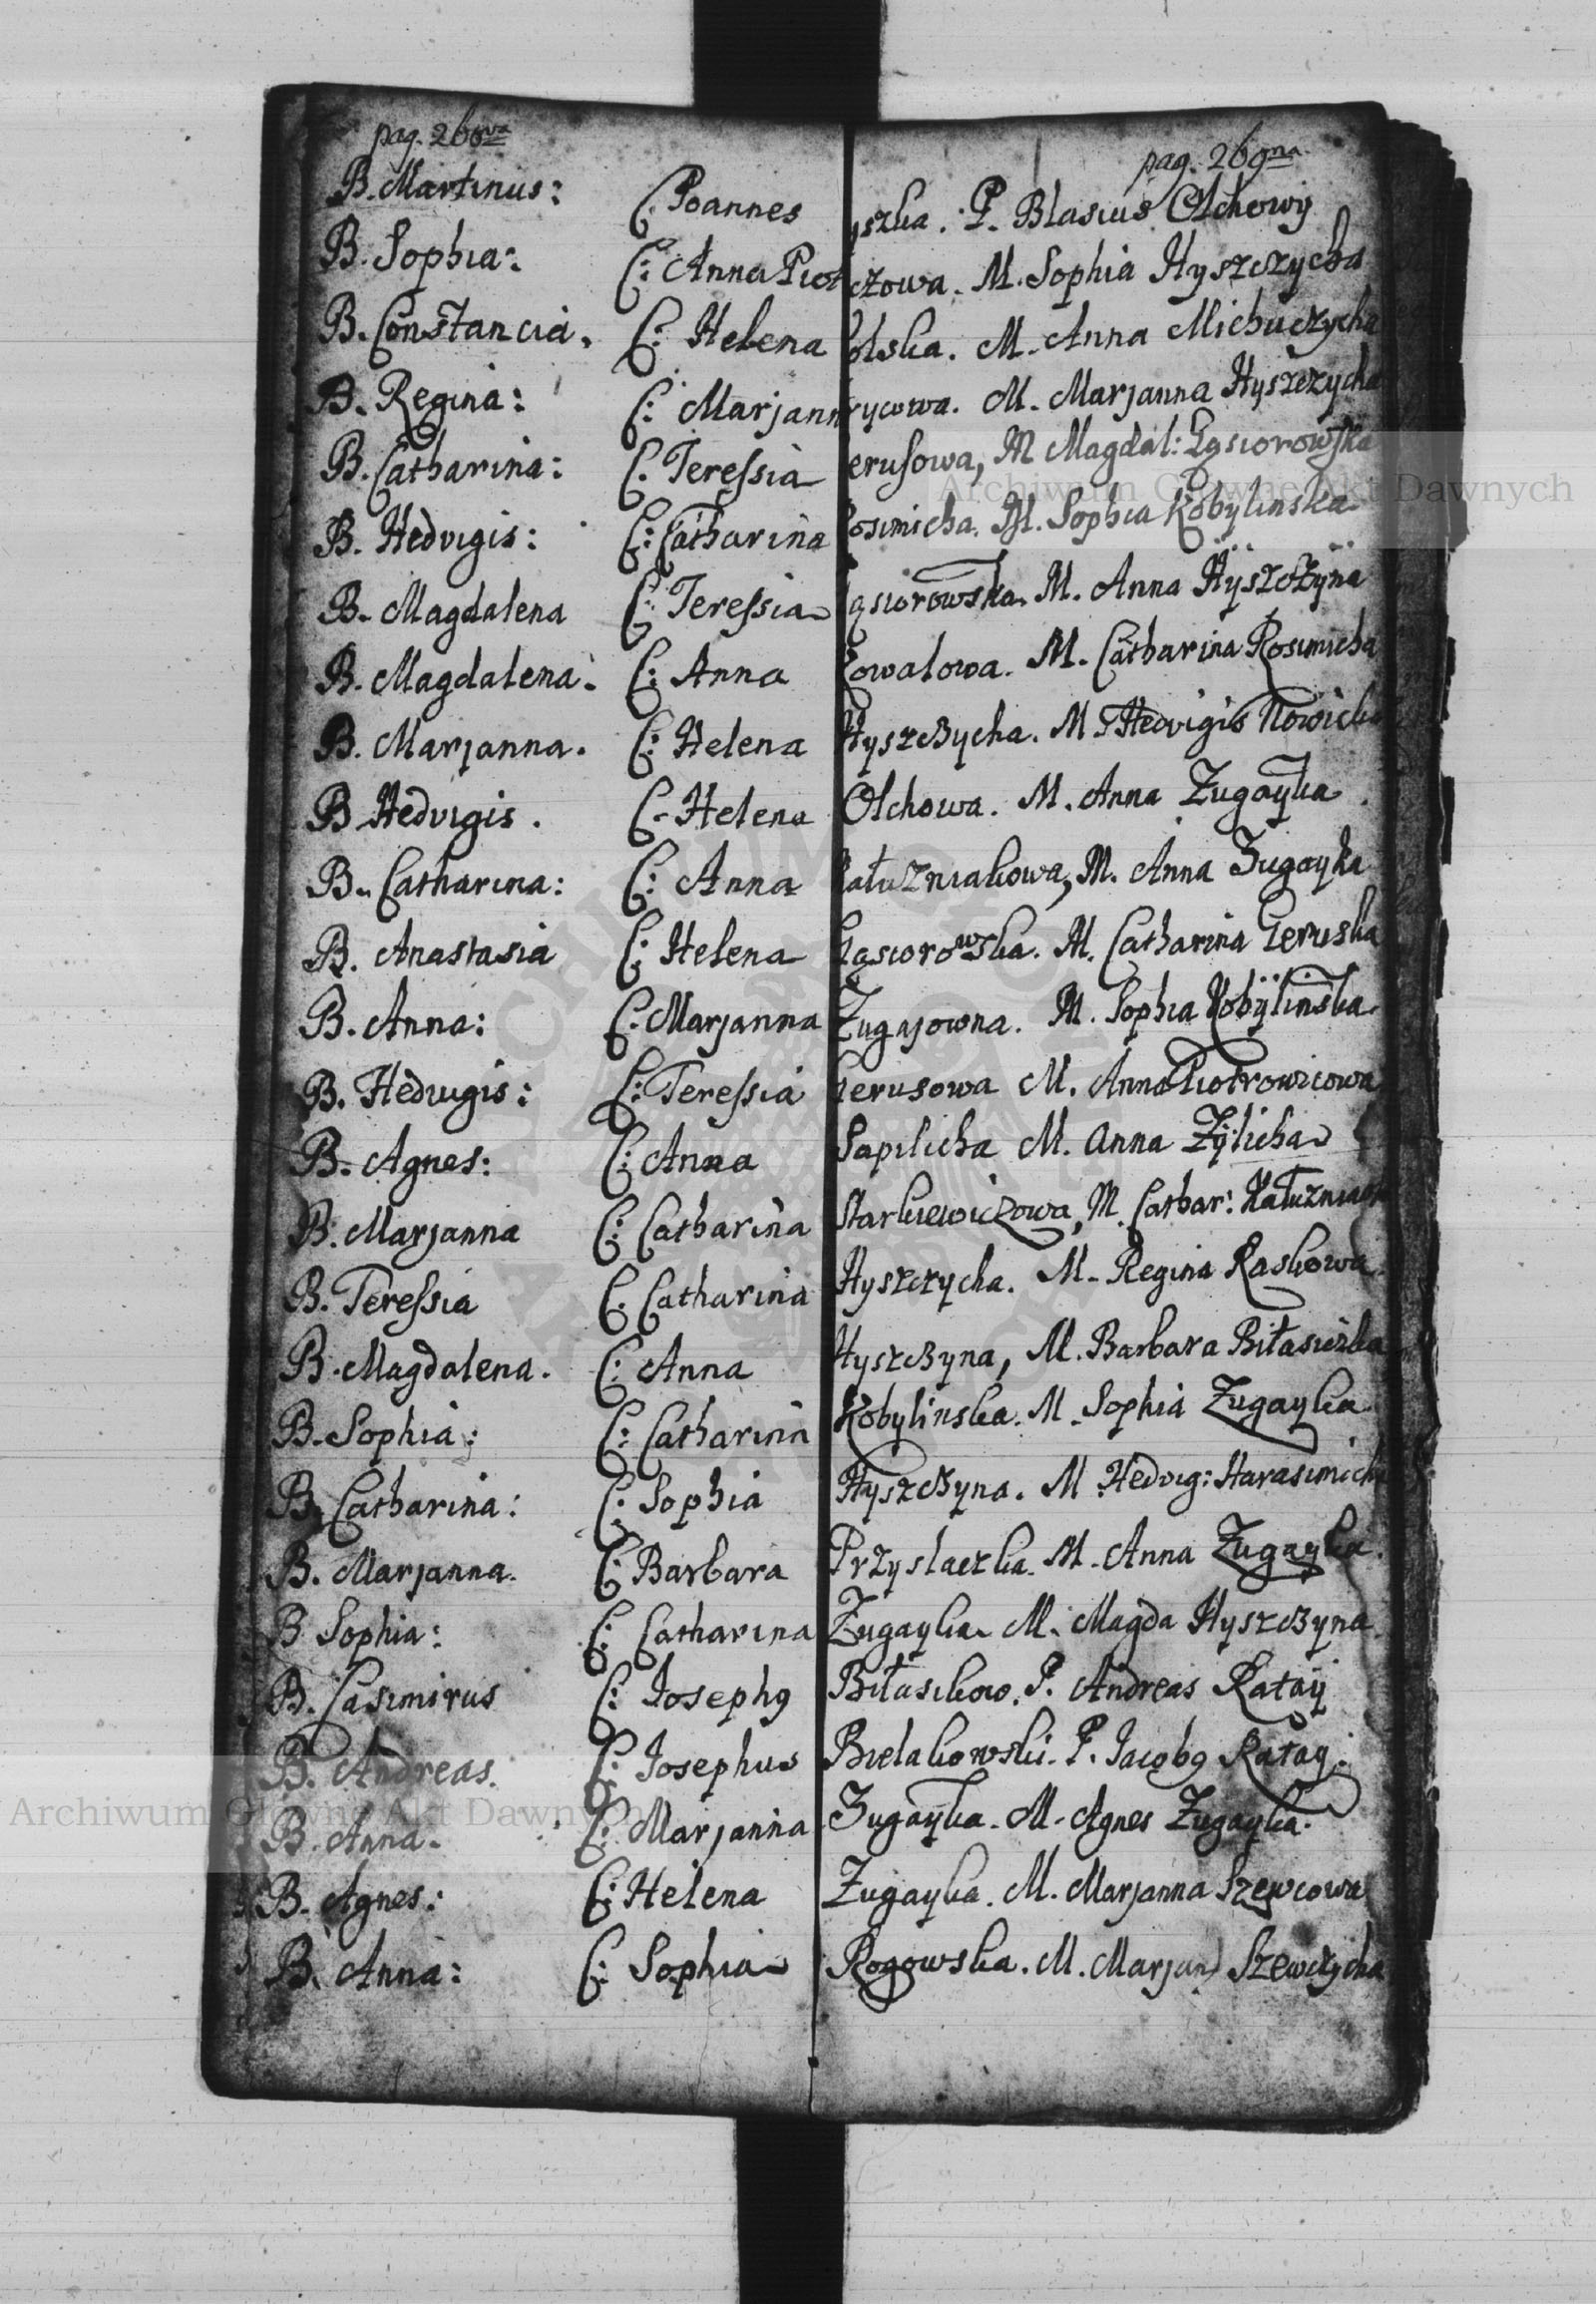 pag. 260va
pag. 269na
B. Martinus: C. Joannes yszka. P. Blasius Olchowy
B. Sophia: C: Anna Piot czowa. M. Sophia Hyszczycha
B. Constancia. C: Helena olska. M. Anna Michuczycha
B. Regina: C: Mariann rycowa. M. Marjanna Hyszczycha
B. Catharina: C. Teressia erusowa, M Magdal: Gąsiorowska
B. Hedvigis: C: Catharina osimicha. M. Sophia Kobylinska
B. Magdalena C: Teressia ąsiorowska. M. Anna Hÿszczÿna
B. Magdalena. C: Anna Kowalowa. M. Catharina Rosimicha
B. Marjanna. C: Helena Hyszczycha. M. Hedvigis Nowicka
B Hedvigis. C. Helena Olchowa. M. Anna Zugayka
B. Catharina: C: Anna Kałuzniakowa, M. Anna Zugayka
B. Anastasia C: Helena Gąsiorowska. M. Catharina Geruska
B. Anna: C: Marjanna Zugajowna. M. Sophia Kobÿlinska
B. Hedvigis: C: Teressia Gerusowa M. Anna Piotrowicowa
B. Agnes: C: Anna Sapilicha M. Anna Zÿlicha
B. Marjanna C: Catharina Starkiewiczowa, M. Cathar: Kałuzniak
B. Teressia C. Catharina Hyszczycha. M. Regina Raskowa
B. Magdalena. C: Anna Hyszczyna, M. Barbara Biłasiezka
B. Sophia: C: Catharina Kobylinska. M. Sophia Zugayka
B. Catharina: C: Sophia Hyszczyna. M. Hedvig: Harasimicha
B. Marjanna. C: Barbara Przyslaczka. M. Anna Zugayka.
B Sophia: C: Catharina Zugayka M. Magda Hyszczyna
B. Casimirus C: Joseph9 Biłasikow. P. Andreas Rataÿ
B. Andreas. C: Josephus Bielakowski. P. Jacob9 Ratay.
B. Anna. C: Marjanna Zugayka. M. Agnes Zugayka.
B. Agnes: C: Helena Zugayka. M. Marjanna Szewcowa
B. Anna: C: Sophia Rogowska. M. Marjan Szewczycha
Archiwum Główne Akt Dawnych
Archiwum Główne Akt Dawnych